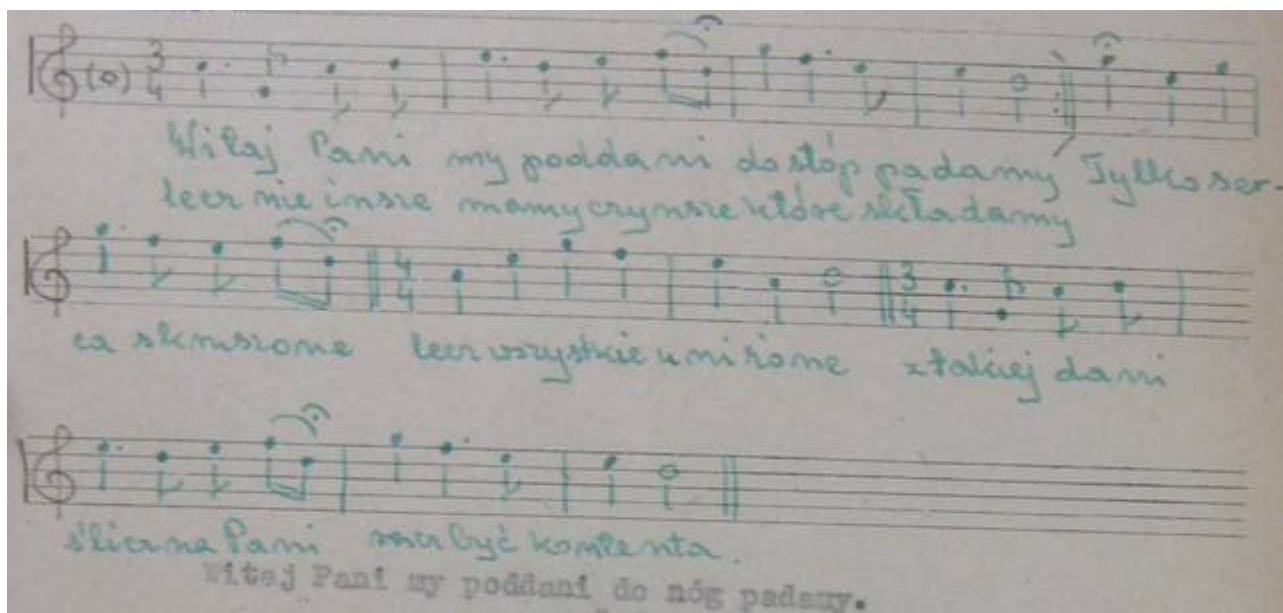 Witaj Pani my poddani do stóp padamy Tylko ser-
lecz nie insze mamy czynsze które składamy
ca skruszone lecz wszystkie uniżone z takiej dani
śliczna Pani racz być kontenta.
Witaj Pani my poddani do nóg padamy.